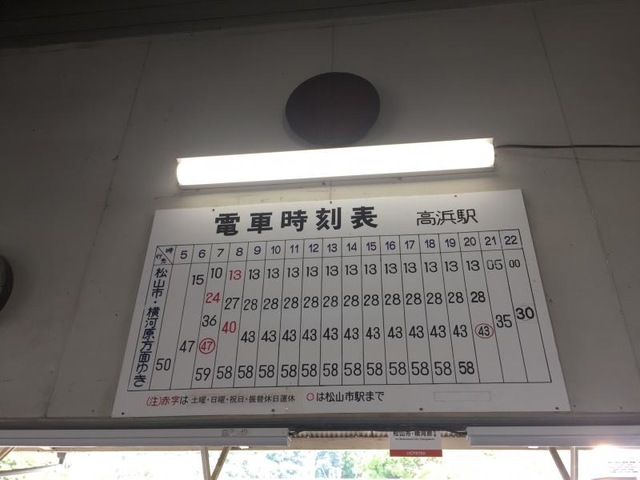 電車時刻表 高浜駅
時 5 6 7 8 9 10 11 12 13 14 15 16 17 18 19 20 21 22
行先
松山市・横河原方面ゆき
15 10 13 13 13 13 13 13 13 13 13 13 13 13 13 05 00
24 27 28 28 28 28 28 28 28 28 28 28 28 28
36 40 43 43 43 43 43 43 43 43 43 43 43 43 35 30
50 47 47 59 58 58 58 58 58 58 58 58 58 58 58 58
(注)赤字は 土曜・日曜・祝日・振替休日運休 ○は松山市駅まで